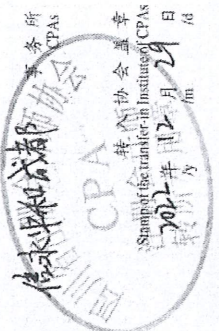 信永中和成都 事务所
CPAs
转入协会盖章
Stamp of the transfer-in Institute of CPAs
2022年12月29日
/y /m /d
师协会
CPA